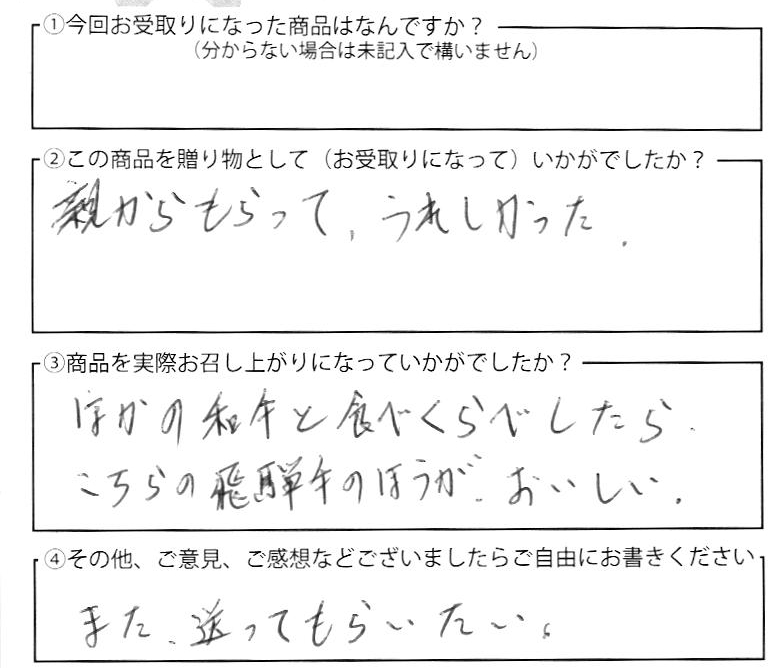 ①今回お受取りになった商品はなんですか？
（分からない場合は未記入で構いません）
②この商品を贈り物として（お受取りになって）いかがでしたか？
親からもらって、うれしかった．
③商品を実際お召し上がりになっていかがでしたか？
ほかの和牛と食べくらべしたら、
こちらの飛騨牛のほうが、おいしい．
④その他、ご意見、ご感想などございましたらご自由にお書きください
また、送ってもらいたい。